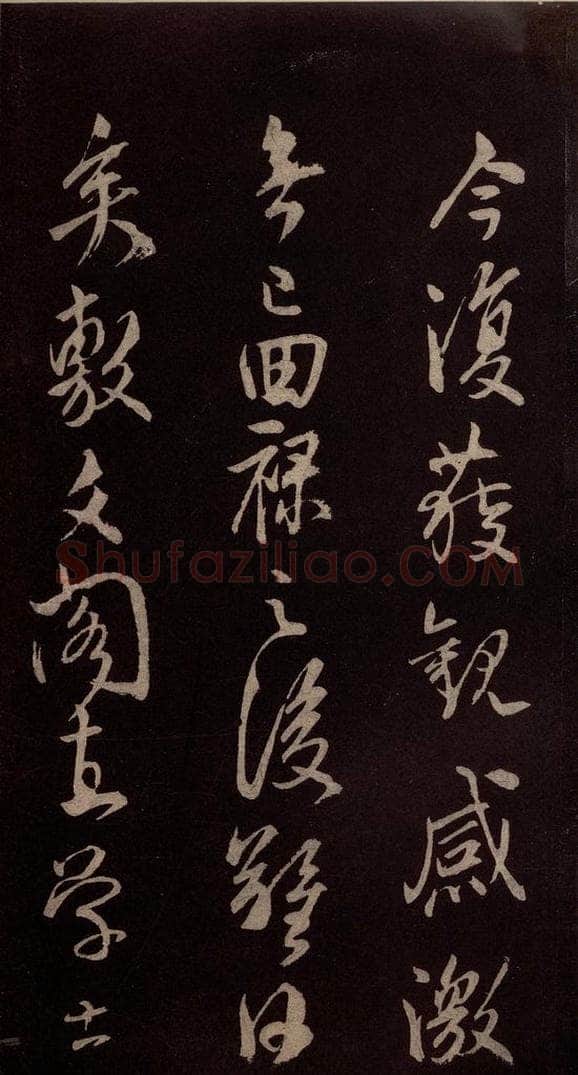 今復獲觀感激
無已回祿之後難得
矣敷文閣直學士
Shufaziliao.COM